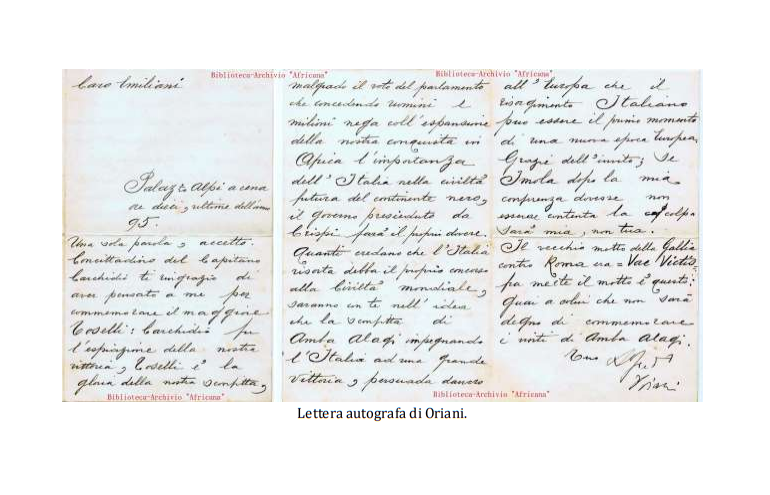 Biblioteca-Archivio "Africana"
Biblioteca-Archivio "Africana"
Caro Emiliani
Palazzo Alpi a cena
ore dieci, ultime dell'anno
95.
Una sola parola, accetto.
Concittadino del Capitano
Carchidio ti ringrazio di
aver pensato a me per
commemorare il maggiore
Toselli: Carchidio fu
l'espiazione della nostra
vittoria, Toselli è la
gloria della nostra sconfitta,
Biblioteca-Archivio "Africana"
malgrado il voto del parlamento
che concedendo uomini e
milioni nega coll'espansione
della nostra conquista in
Africa l'importanza
dell'Italia nella civiltà
futura del continente nero,
il governo presieduto da
Crispi farà il proprio dovere.
Quanti credano che l'Italia
risorta debba il proprio concorso
alla Civiltà mondiale,
saranno con te nell'idea
che la sconfitta di
Amba Alagi impegnando
l'Italia ad una grande
vittoria, persuada
all'Europa che il
risorgimento Italiano
può essere il primo momento
di una nuova epoca Europea.
Grazie dell'invito; se
Imola dopo la mia
conferenza dovesse non
essere contenta la colpa
sarà mia, non tua.
Il vecchio motto della Gallia
contro Roma era = Vae Victis,
fra me e te il motto è questo:
guai a colui che non sarà
degno di commemorare
i morti di Amba Alagi.
Tuo
Oriani
Biblioteca-Archivio "Africana"
Lettera autografa di Oriani.